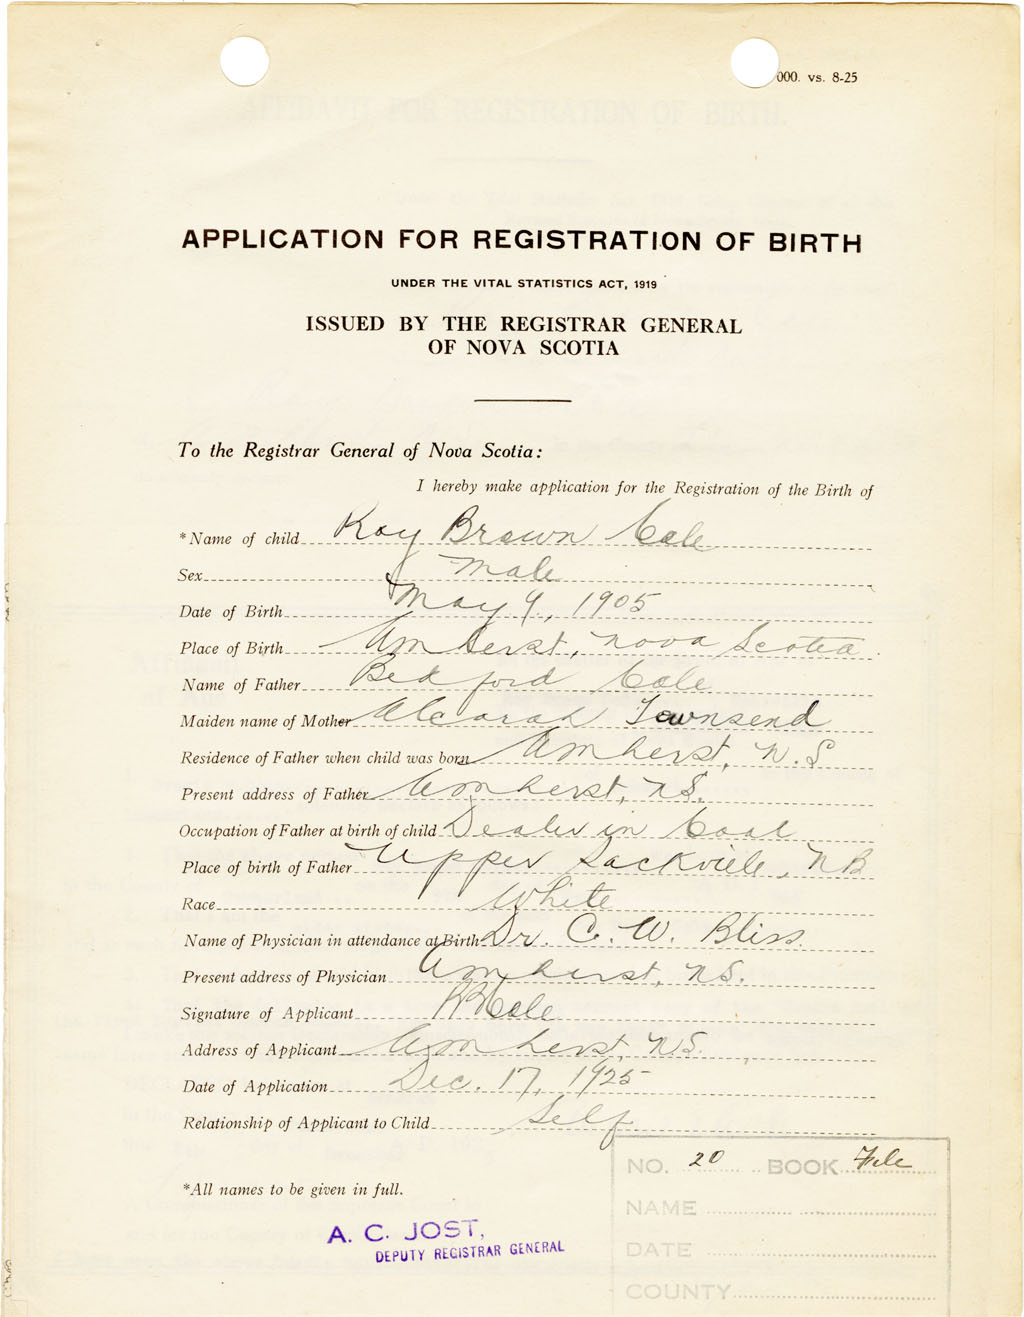 000. vs. 8-25
APPLICATION FOR REGISTRATION OF BIRTH
UNDER THE VITAL STATISTICS ACT, 1919
ISSUED BY THE REGISTRAR GENERAL
OF NOVA SCOTIA
To the Registrar General of Nova Scotia:
I hereby make application for the Registration of the Birth of
*Name of child Ray Brown Cole
Sex Male
Date of Birth May 9, 1905
Place of Birth Amherst, Nova Scotia
Name of Father Bedford Cole
Maiden name of Mother Townsend
Residence of Father when child was born Amherst, N.S
Present address of Father Amherst, N.S.
Occupation of Father at birth of child Dealer in Coal
Place of birth of Father Upper Sackville, NB
Race White
Name of Physician in attendance at Birth Dr. C. W. Bliss.
Present address of Physician Amherst, N.S.
Signature of Applicant RBCole
Address of Applicant Amherst, N.S.
Date of Application Dec. 17, 1925
Relationship of Applicant to Child Self
NO. 20 BOOK File
*All names to be given in full.
NAME
A. C. JOST,
DEPUTY REGISTRAR GENERAL
DATE
COUNTY